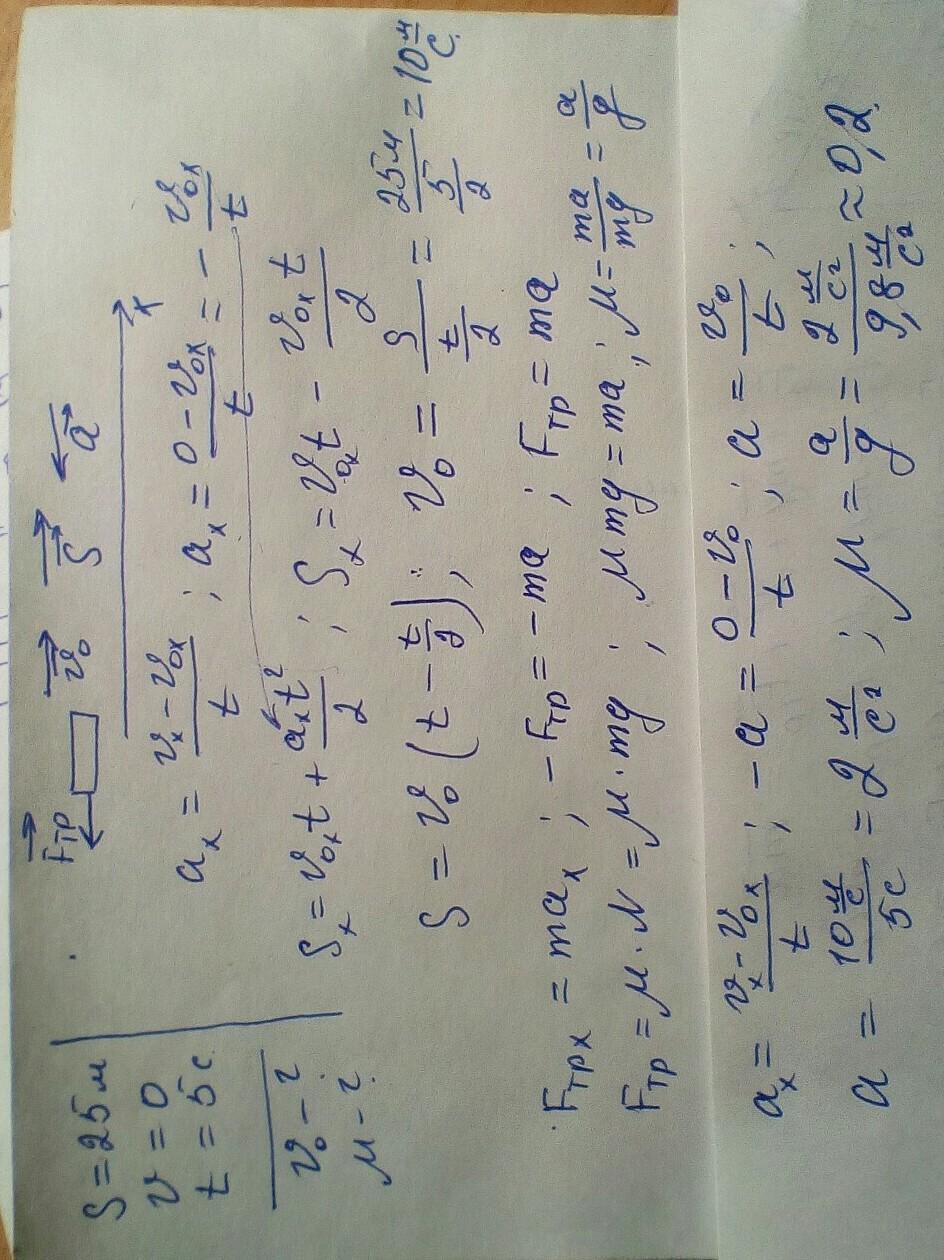 S = 25 м
v = 0
t = 5 с.
v₀ - ?
μ - ?
F⃗тр v⃗₀ S⃗ a⃗
x
aₓ = (vₓ - v₀ₓ)/t ; aₓ = (0 - v₀ₓ)/t = - v₀ₓ/t
Sₓ = v₀ₓt + aₓt²/2 ; Sₓ = v₀ₓt - v₀ₓt/2
S = v₀ (t - t/2) ; v₀ = S/(t/2) = 25м/(5/2) = 10 м/с.
Fтрx = maₓ ; -Fтр = -ma ; Fтр = ma
Fтр = μ·N = μ·mg ; μmg = ma ; μ = ma/mg = a/g
aₓ = (vₓ - v₀ₓ)/t ; -a = (0 - v₀)/t ; a = v₀/t ;
a = (10 м/с)/(5с) = 2 м/с² ; μ = a/g = (2 м/с²)/(9,8 м/с²) ≈ 0,2.